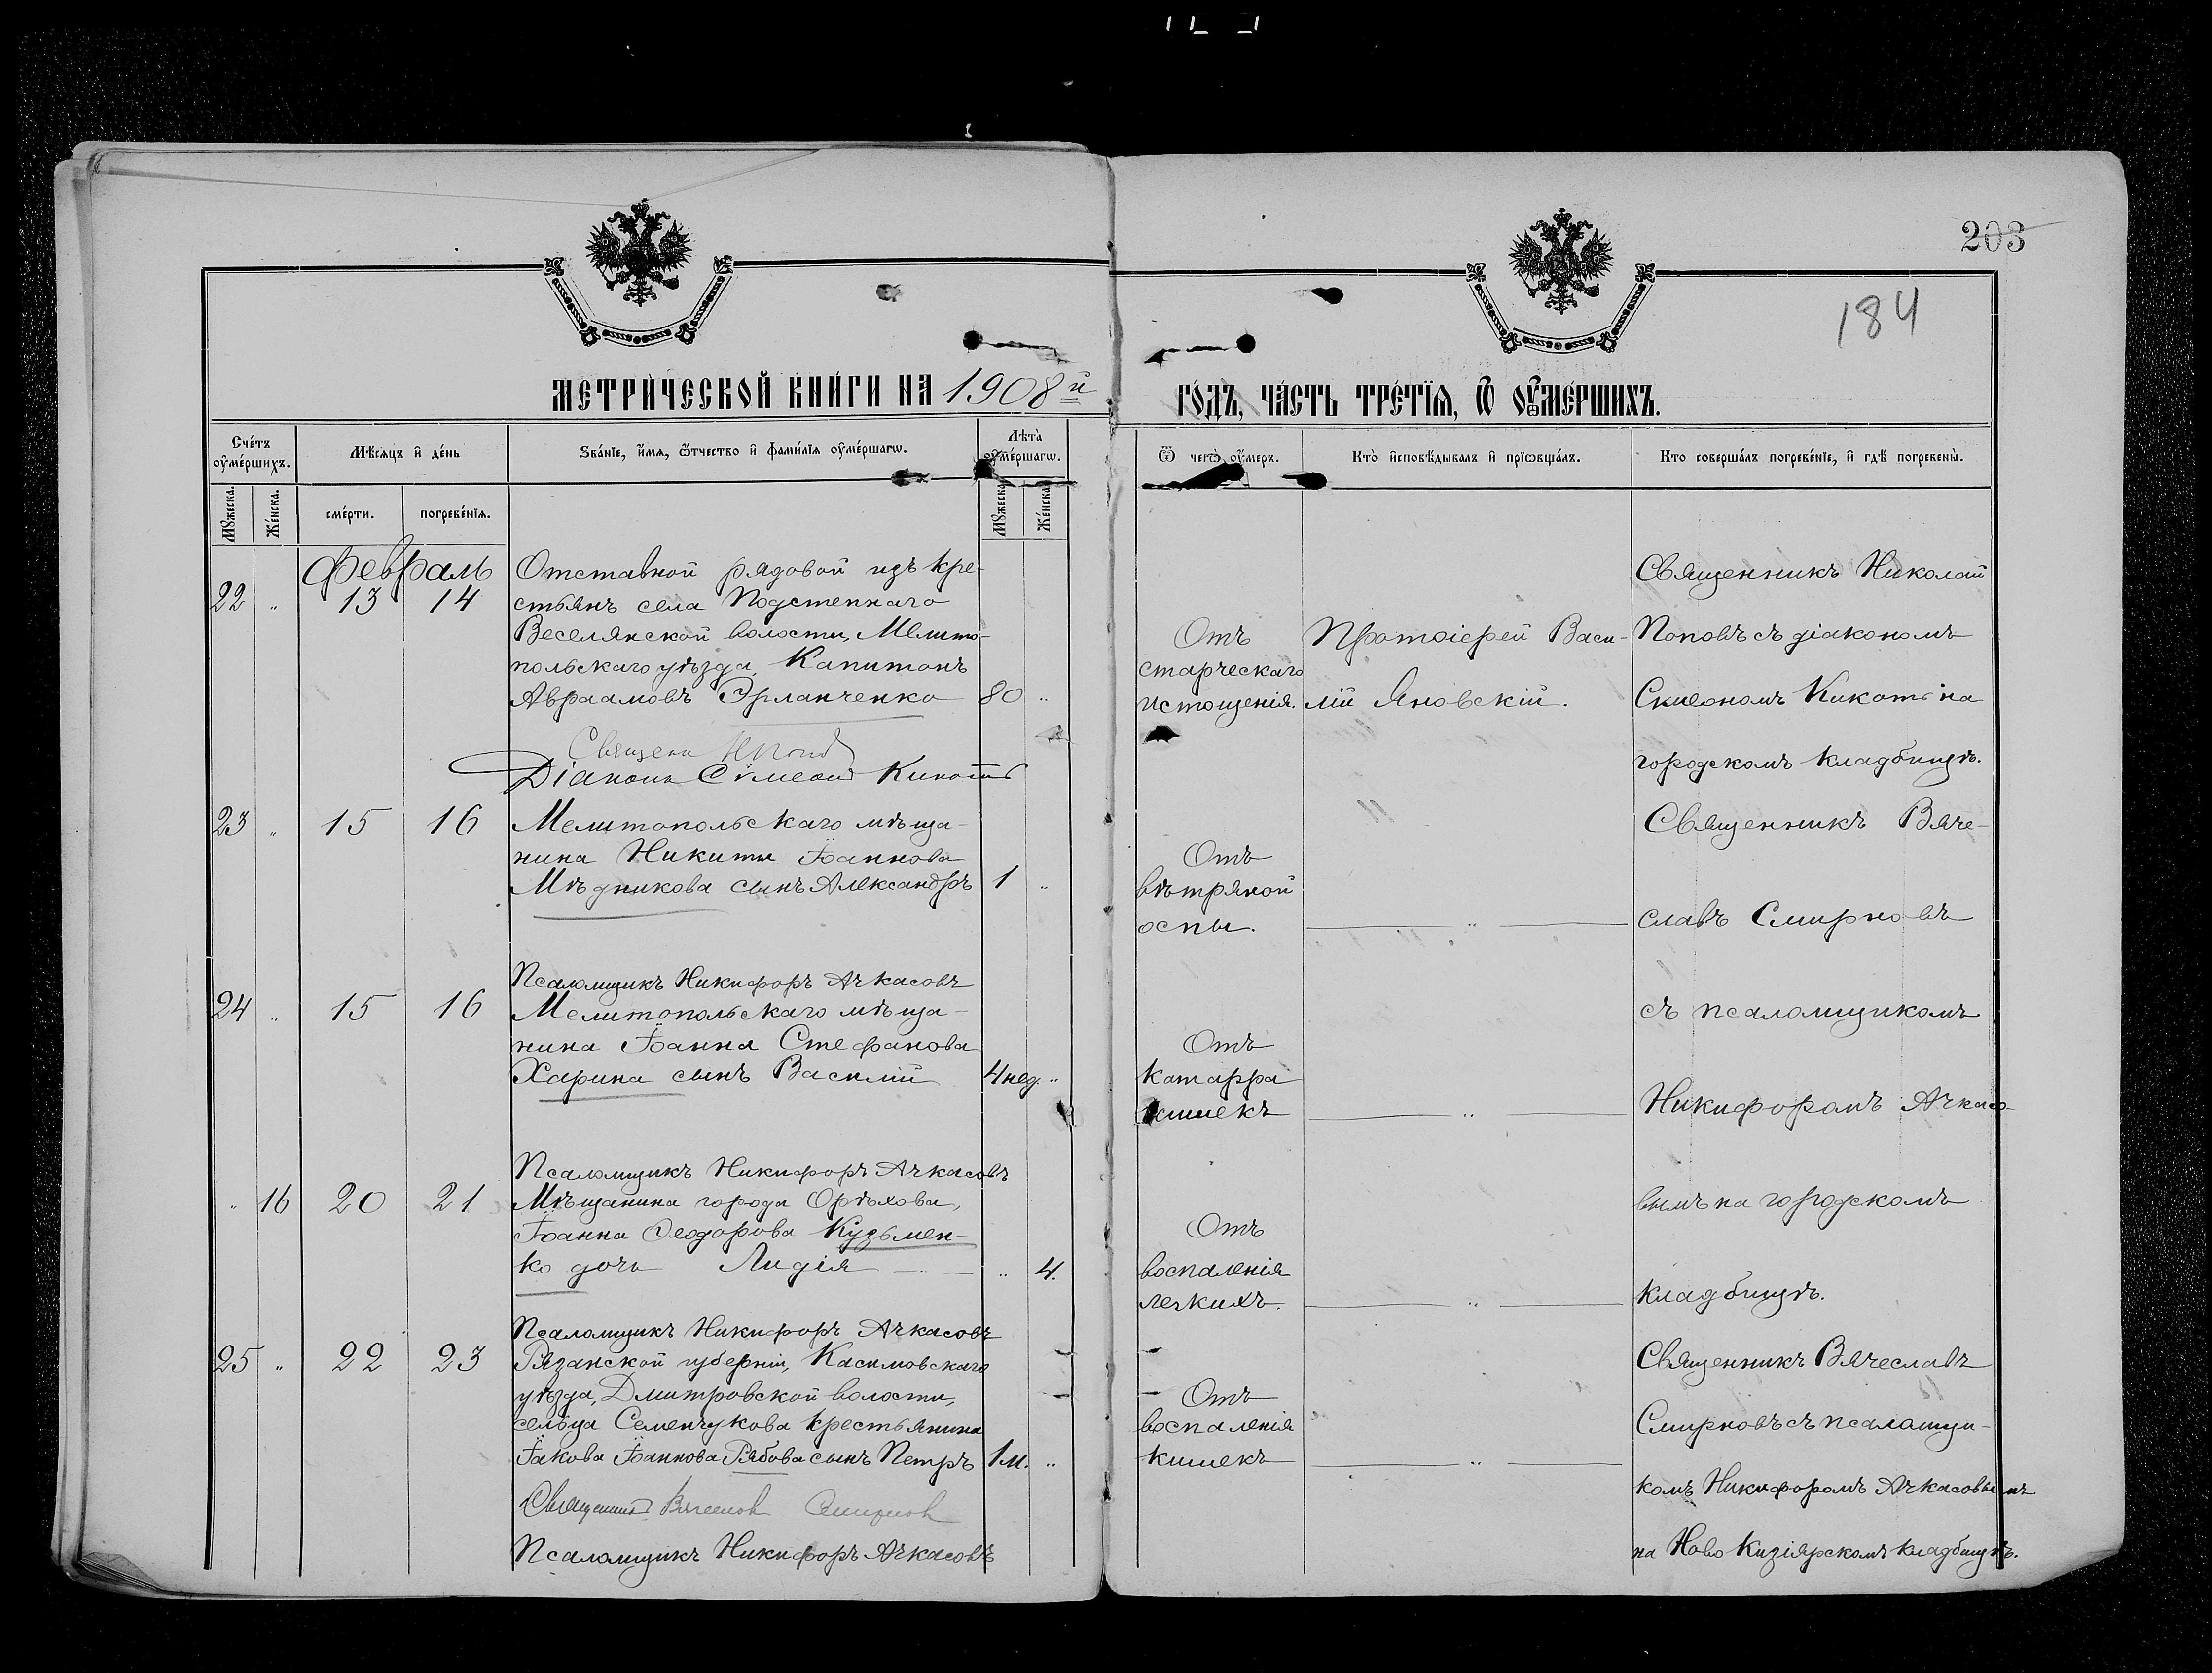 203
184
МЕТРИ́ЧЕСКОЙ КНИ́ГИ НА 1908й
ГО́ДЪ, ЧА́СТЬ ТРЕ́ТЇѦ, Ѿ ОУМЕ́РШИХЪ.
Сче́тъ оумершихъ.
Мѣ́сяцъ и де́нь
Зва́нїе, и́мя, о́тчество и фами́лїя оуме́ршагѡ.
Лѣта̀ оуме́ршагѡ.
Ѿ чегѡ̀ оу́меръ.
Кто̀ исповѣ́дывалъ и прїѡбща́лъ.
Кто соверша́лъ погребе́нїе, и гдѣ̀ погребены̀.
Мужеска.
Же́нска.
сме́рти.
погребе́нїя.
Мужеска
Же́нска
Февраль
22 " 13 14
Отставной рядовой изъ кре-
стьянъ села Подстепнаго
Веселянской волости, Мелито-
польскаго уѣзда, Капитонъ
Авраамовъ Эрланченко 80 "
Отъ
старческаго
истощенія.
Протоіерей Васи-
лій Яновскій.
Священникъ Николай
Поповъ съ діакономъ
Симеономъ Кикоть на
городскомъ кладбищѣ.
Священ НПопов
Діаконъ Сѵмеонъ Кикоть
23 " 15 16
Мелитопольскаго мѣща-
нина Никиты Іоаннова
Мѣдникова сынъ Александръ 1 "
Отъ
вѣтряной
оспы.
"
Священникъ Вяче-
славъ Смирновъ
съ псаломщикомъ
Никифоромъ Ачкасо-
вымъ на городскомъ
кладбищѣ.
Псаломщикъ Никифоръ Ачкасовъ
24 " 15 16
Мелитопольскаго мѣща-
нина Іоанна Стефанова
Харина сынъ Василій 4 нед. "
Отъ
катарра
кишекъ
"
Псаломщикъ Никифоръ Ачкасовъ
" 16 20 21
Мѣщанина города Орѣхова,
Іоанна Ѳеодорова Кузьмен-
ко дочь Лидія " 4.
Отъ
воспаленія
легкихъ.
"
Псаломщикъ Никифоръ Ачкасовъ
25 " 22 23
Рязанской губерніи, Касимовскаго
уѣзда, Дмитровской волости,
сельца Семенчукова крестьянина
Іакова Іоаннова Рябова сынъ Петръ 1 м. "
Отъ
воспаленія
кишекъ
"
Священникъ Вячеславъ
Смирновъ съ псаломщи-
комъ Никифоромъ Ачкасовымъ
на Ново Кизіярскомъ кладбищѣ.
Священникъ Вячеслав Смирнов
Псаломщикъ Никифоръ Ачкасовъ